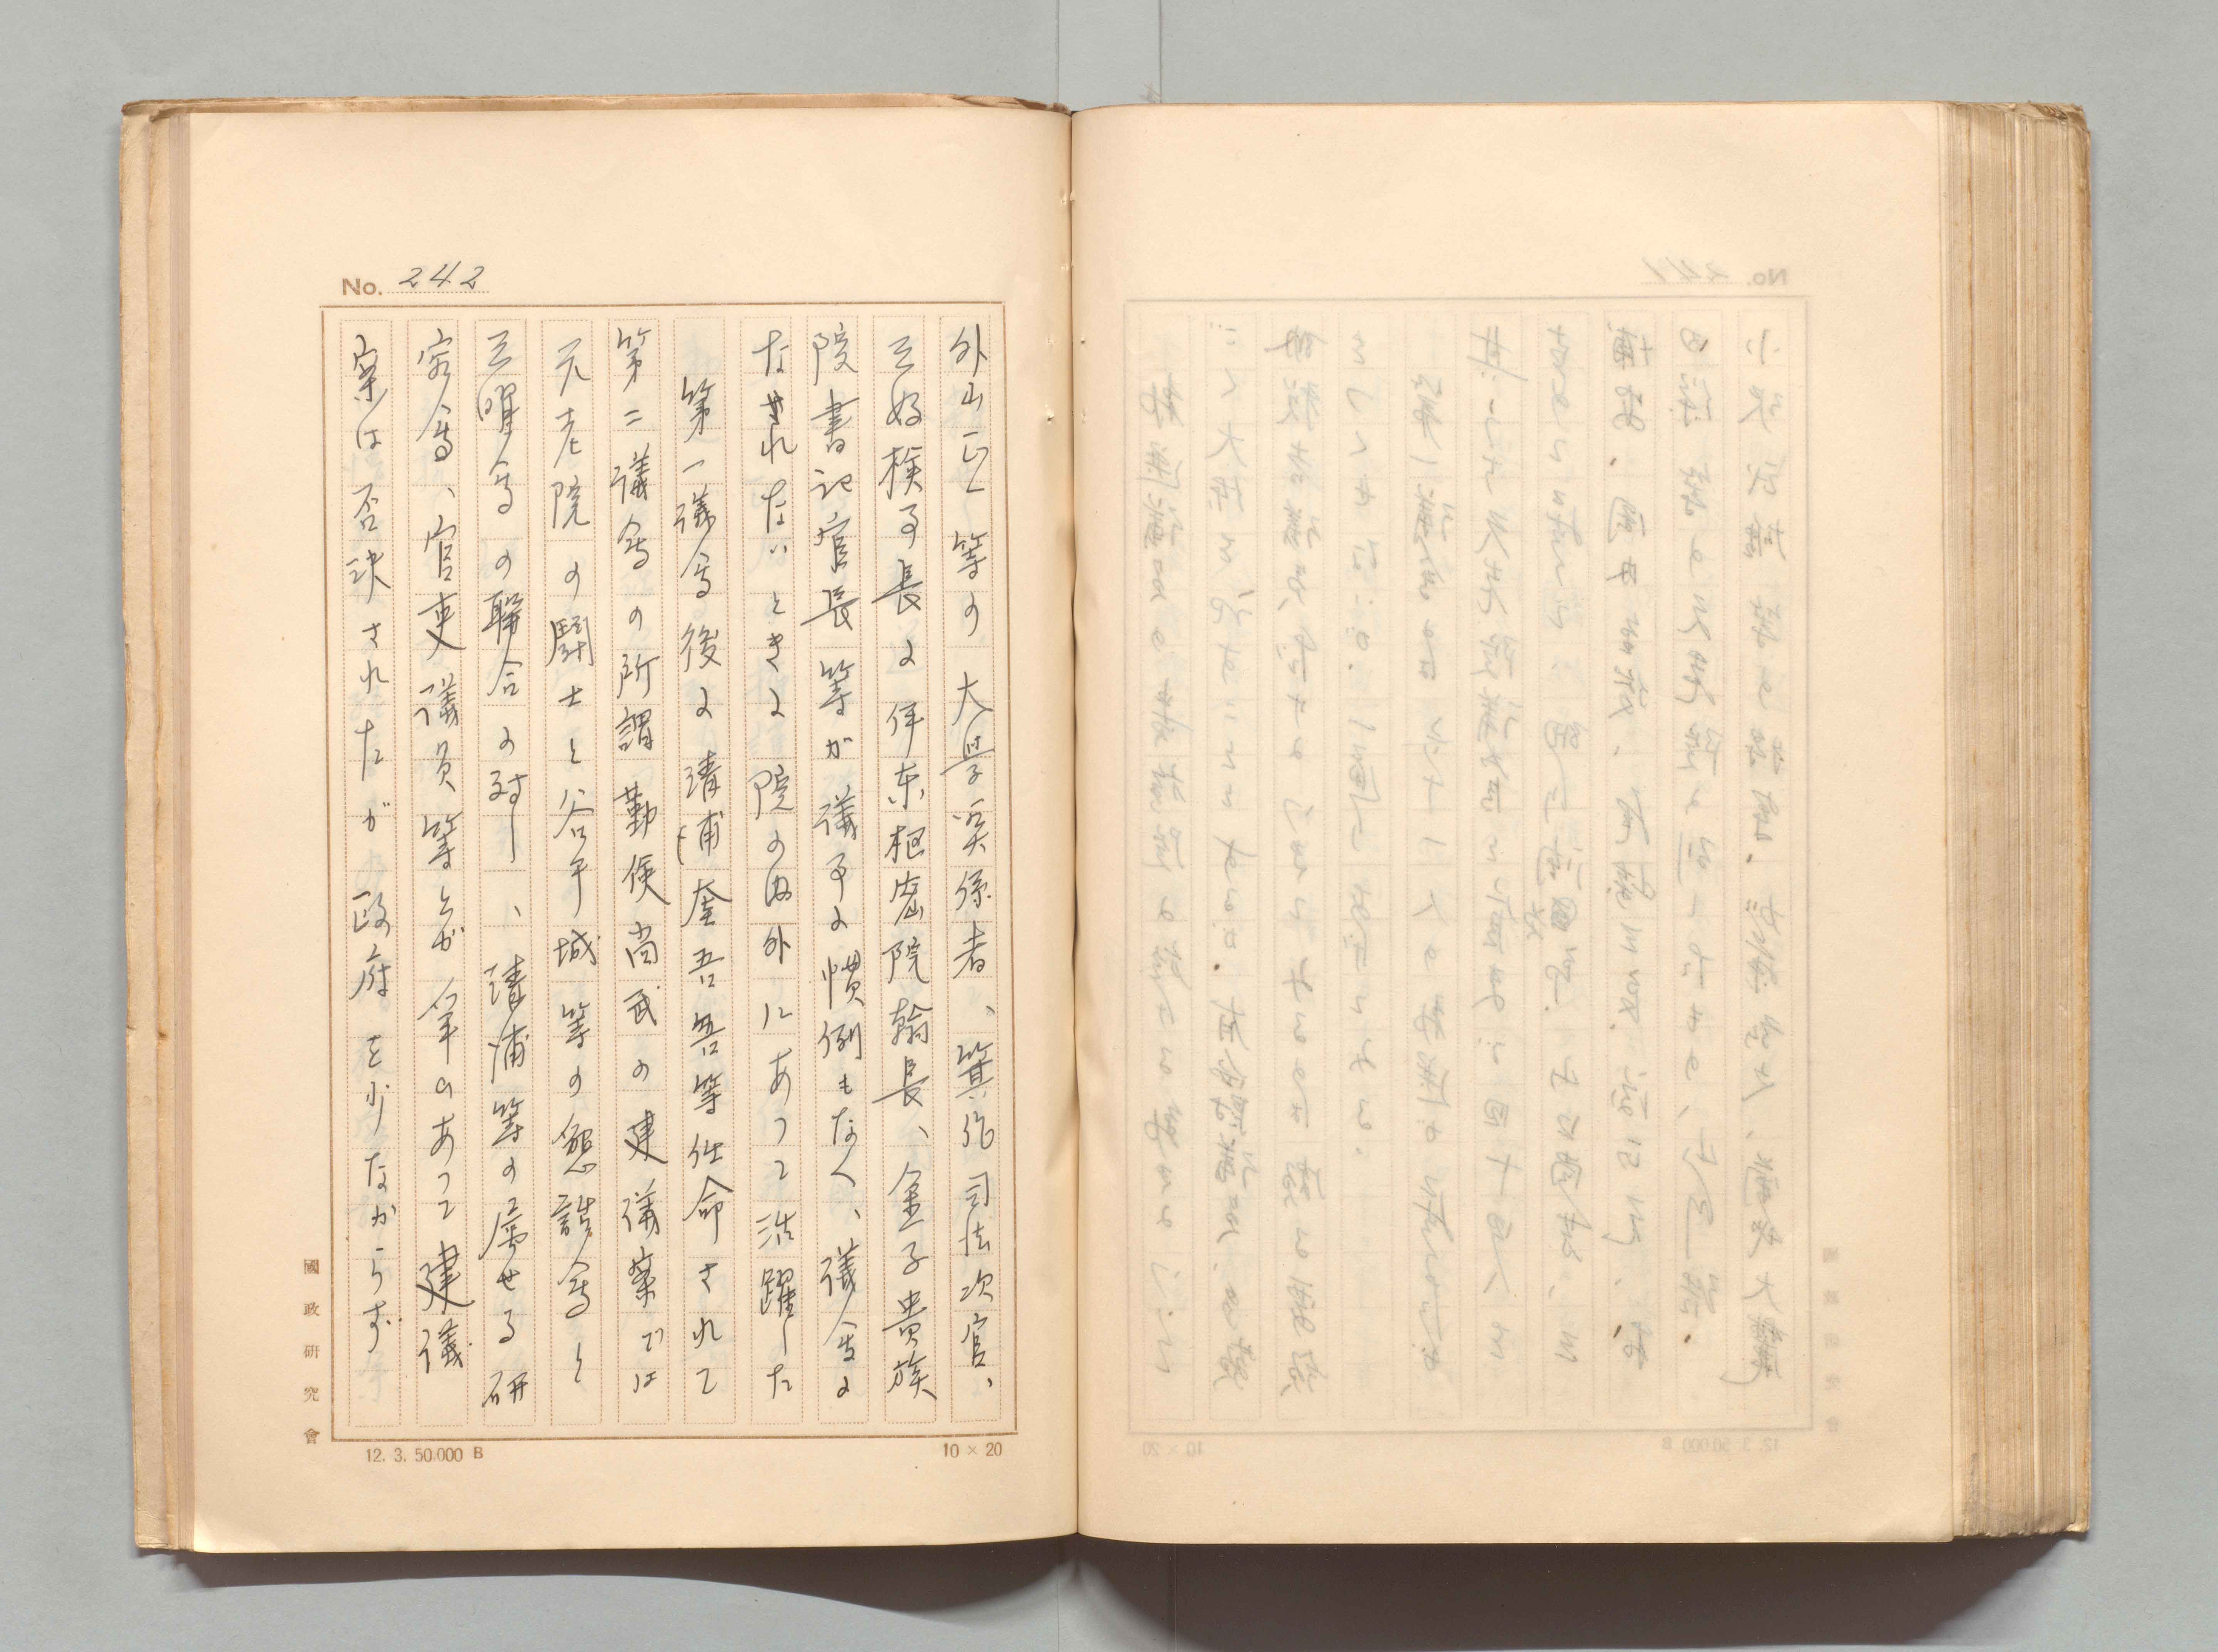 No. 242
外山正一等の大学関係者、箕作司法次官、
三好検事長に伊東枢密院翰長、金子貴族
院書記官長等が議事に慣例もなく、議会に
なされないときに院の内外にあつて活躍した
第一議会後に清浦奎吾等任命されて
第二議会の所謂勤倹尚武の建議案では
元老院の闘士と谷干城等の懇話会と
三曜会の聯合に対し、清浦等の属せる研
究会、官吏議員等とが争のあつて建議
案は否決されたが政府を少なからず
國政研究會
12. 3. 50,000 B
10 × 20